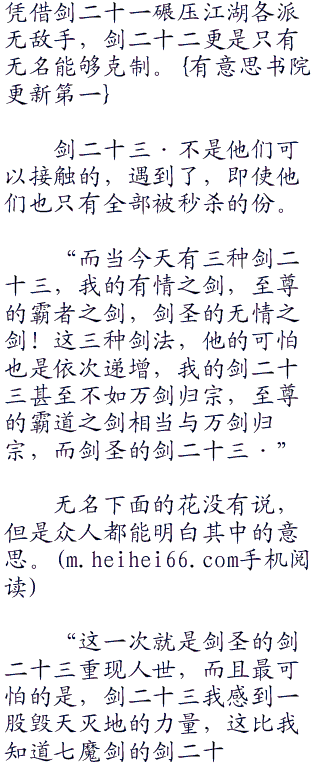 凭借剑二十一碾压江湖各派
无敌手，剑二十二更是只有
无名能够克制。{有意思书院
更新第一}
剑二十三·不是他们可
以接触的，遇到了，即使他
们也只有全部被秒杀的份。
“而当今天有三种剑二
十三，我的有情之剑，至尊
的霸者之剑，剑圣的无情之
剑！这三种剑法，他的可怕
也是依次递增，我的剑二十
三甚至不如万剑归宗，至尊
的霸道之剑相当与万剑归
宗，而剑圣的剑二十三·”
无名下面的花没有说，
但是众人都能明白其中的意
思。(m.heihei66.com手机阅
读)
“这一次就是剑圣的剑
二十三重现人世，而且最可
怕的是，剑二十三我感到一
股毁天灭地的力量，这比我
知道七魔剑的剑二十